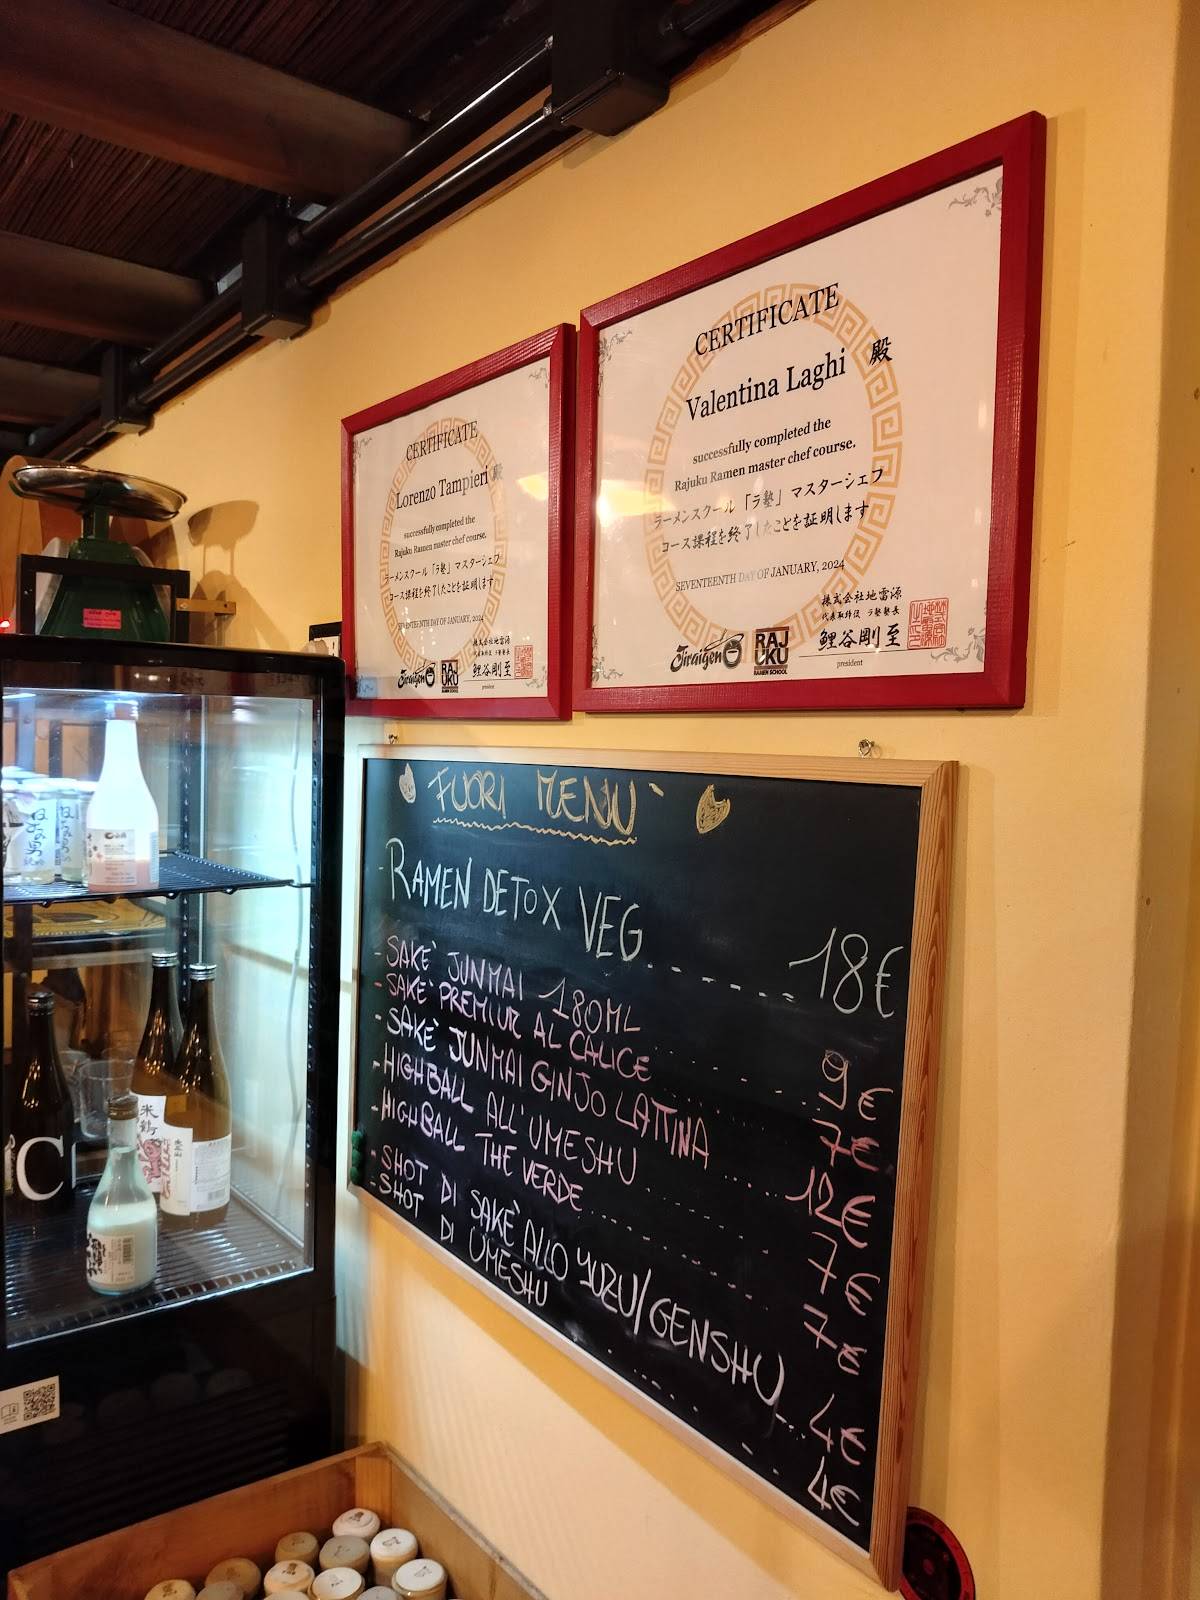 CERTIFICATE
Lorenzo Tampieri 殿
successfully completed the
Rajuku Ramen master chef course.
ラーメンスクール「ラ塾」マスターシェフ
コース課程を終了したことを証明します
SEVENTEENTH DAY OF JANUARY, 2024
株式会社地雷源
代表取締役 ラ塾塾長
鯉谷剛至
president
Jiraigen
RAJUKU
RAMEN SCHOOL
CERTIFICATE
Valentina Laghi 殿
successfully completed the
Rajuku Ramen master chef course.
ラーメンスクール「ラ塾」マスターシェフ
コース課程を終了したことを証明します
SEVENTEENTH DAY OF JANUARY, 2024
株式会社地雷源
代表取締役 ラ塾塾長
鯉谷剛至
president
Jiraigen
RAJUKU
RAMEN SCHOOL
FUORI MENU`
- RAMEN DETOX VEG..... 18€
- SAKE` JUNMAI 180ML ...... 9€
- SAKE` PREMIUR AL CALICE ...... 7€
- SAKE` JUNMAI GINJO LATTINA ..... 12€
- HIGHBALL ALL'UMESHU ...... 7€
- HIGHBALL THE VERDE ...... 7€
- SHOT DI SAKE` ALLO YUZU/GENSHU ... 4€
- SHOT DI UMESHU ...... 4€
米鶴
C